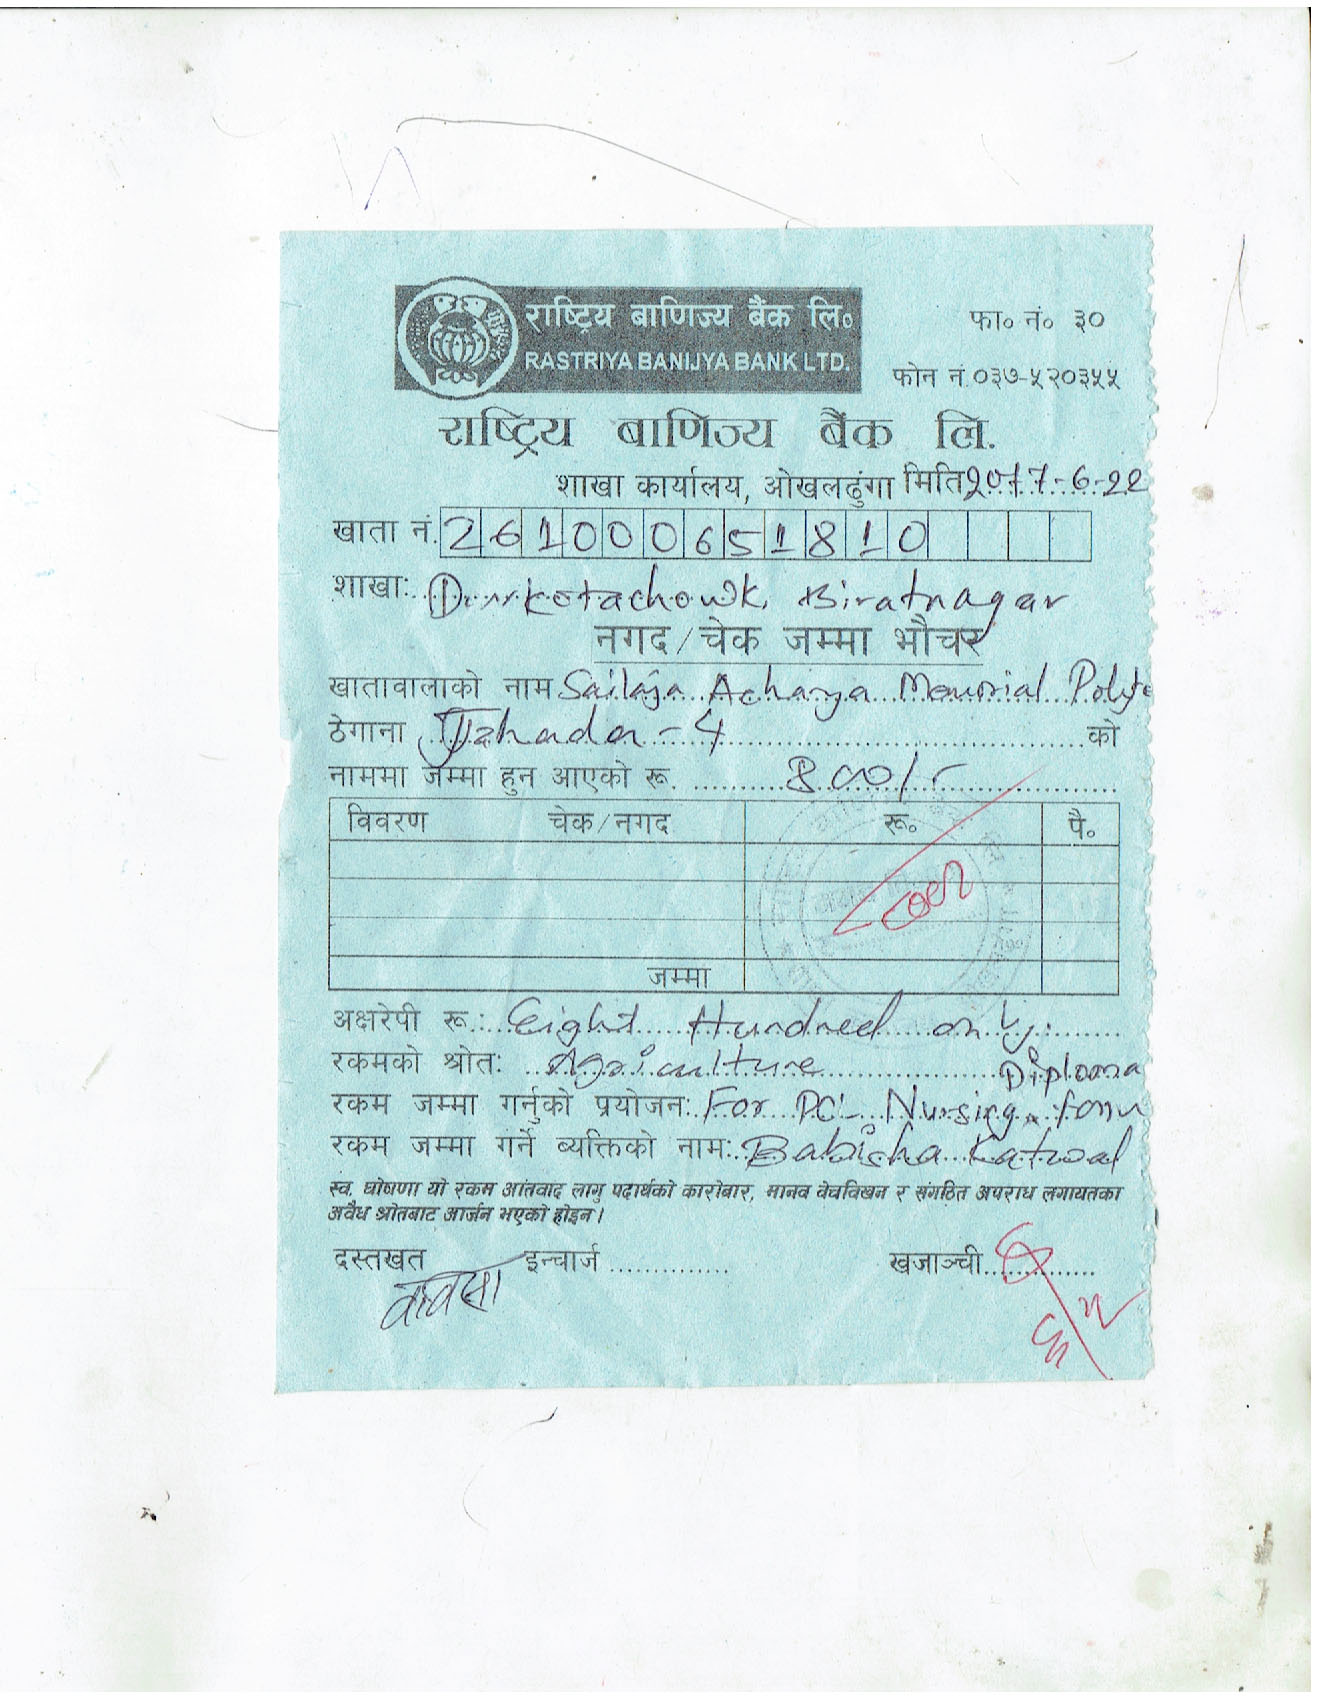 राष्ट्रिय बाणिज्य बैंक लि०
RASTRIYA BANIJYA BANK LTD.
फा० नं० ३०
फोन नं.०३७-५२०३५५
राष्ट्रिय बाणिज्य बैंक लि.
शाखा कार्यालय, ओखलढुंगा मिति 2077-6-22
खाता नं. 261000651810
शाखाः Biratnagar
नगद/चेक जम्मा भौचर
खातावालाको नाम Sailaja Acharya Memorial Polyte
ठेगाना Jahada-4 को
नाममा जम्मा हुन आएको रू. 800/-
विवरण चेक/नगद रू० पै०
८००/
जम्मा
अक्षरेपी रू.: Eight Hundred only.
रकमको श्रोतः Agriculture
Diploma
रकम जम्मा गर्नुको प्रयोजनः For PCL Nursing, form
रकम जम्मा गर्ने ब्यक्तिको नामः Babisha Katwal
स्व. घोषणा यो रकम आंतवाद लागु पदार्थको कारोबार, मानव वेचविखन र संगठित अपराध लगायतका
अवैध श्रोतबाट आर्जन भएको होइन।
दस्तखत इन्चार्ज खजाञ्ची